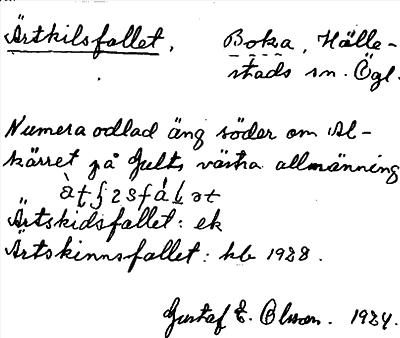 Ärtkilsfallet. Boka, Hälle-
stads sn. Ögl.
Numera odlad äng söder om Al-
kärret på Gults västra allmänning
Ärtskidsfallet: ek
Ärtskinnsfallet: hb 1928.
Gustaf E. Olsson. 1924.